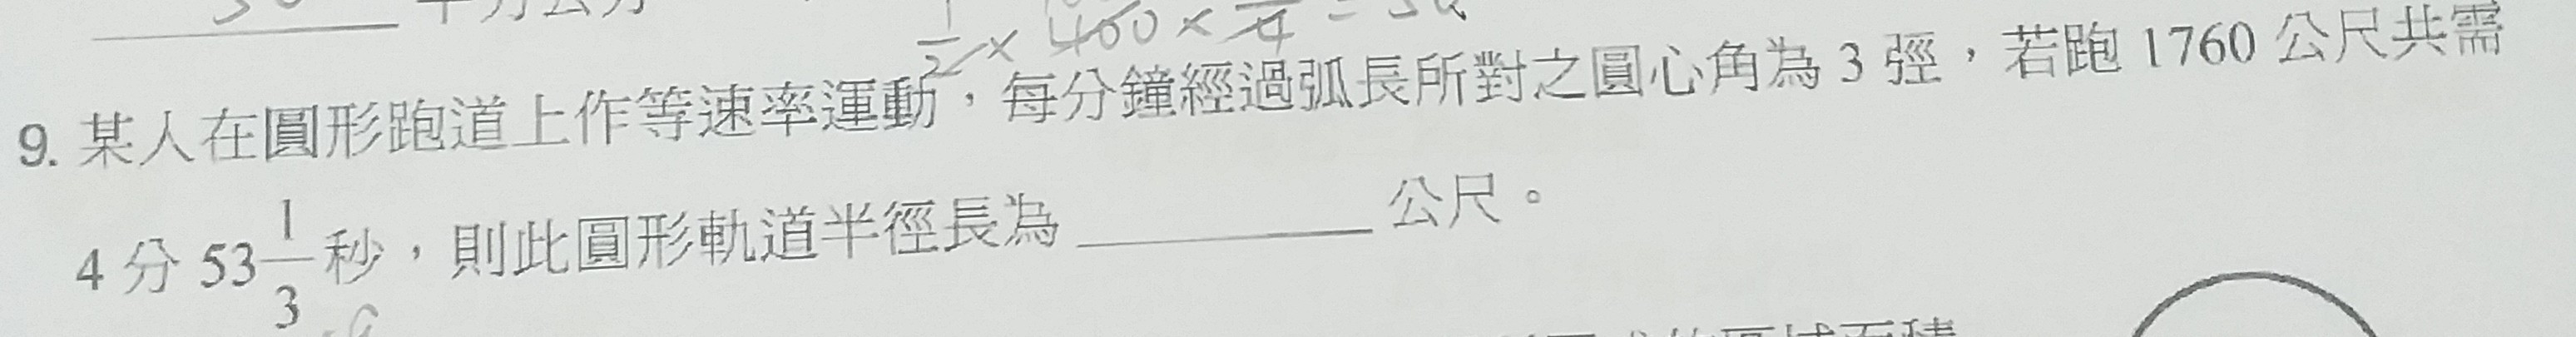 1/2 × 400 ×
9. 某人在圓形跑道上作等速率運動，每分鐘經過弧長所對之圓心角為 3 弳，若跑 1760 公尺共需
4 分 53 1/3 秒，則此圓形軌道半徑長為 ________ 公尺。